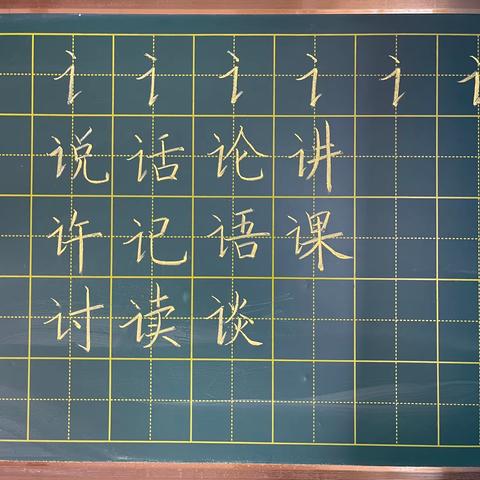 讠讠讠讠讠讠
说话论讲
许记语课
讨读谈